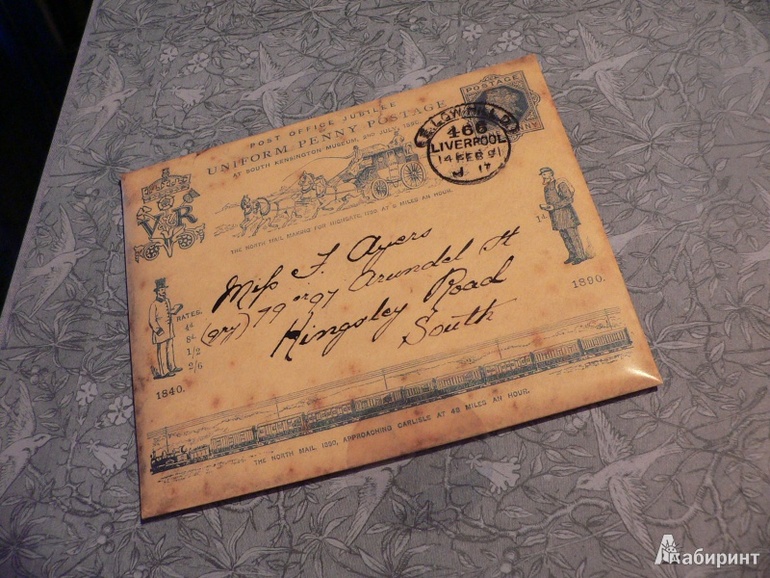 POST OFFICE JUBILEE
UNIFORM PENNY POSTAGE
AT SOUTH KENSINGTON MUSEUM, 2ND JULY 1890.
POSTAGE
PENNY
466
LIVERPOOL
14 FEB 91
17
VR
THE NORTH MAIL MAKING FOR HIGHGATE, 1790, AT 8 MILES AN HOUR.
1d
1890.
Miss F. Ayers
(gry) 79 or 97 Arundel St
Kingsley Road
South
RATES.
4d
8d
1/2
2/6
1840.
THE NORTH MAIL 1890, APPROACHING CARLISLE AT 48 MILES AN HOUR.
Лабиринт